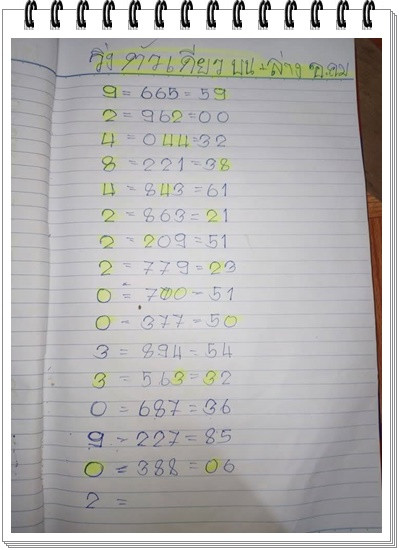 วิ่ง ตัวเดียว บน - ล่าง
9 = 665 = 59
2 = 962 = 00
4 = 044 = 32
8 = 221 = 38
4 = 843 = 61
2 = 863 = 21
2 = 209 = 51
2 = 779 = 23
0 = 700 - 51
0 - 377 - 50
3 = 894 - 54
3 = 563 = 32
0 = 687 = 36
9 - 227 = 85
0 = 388 - 06
2 =